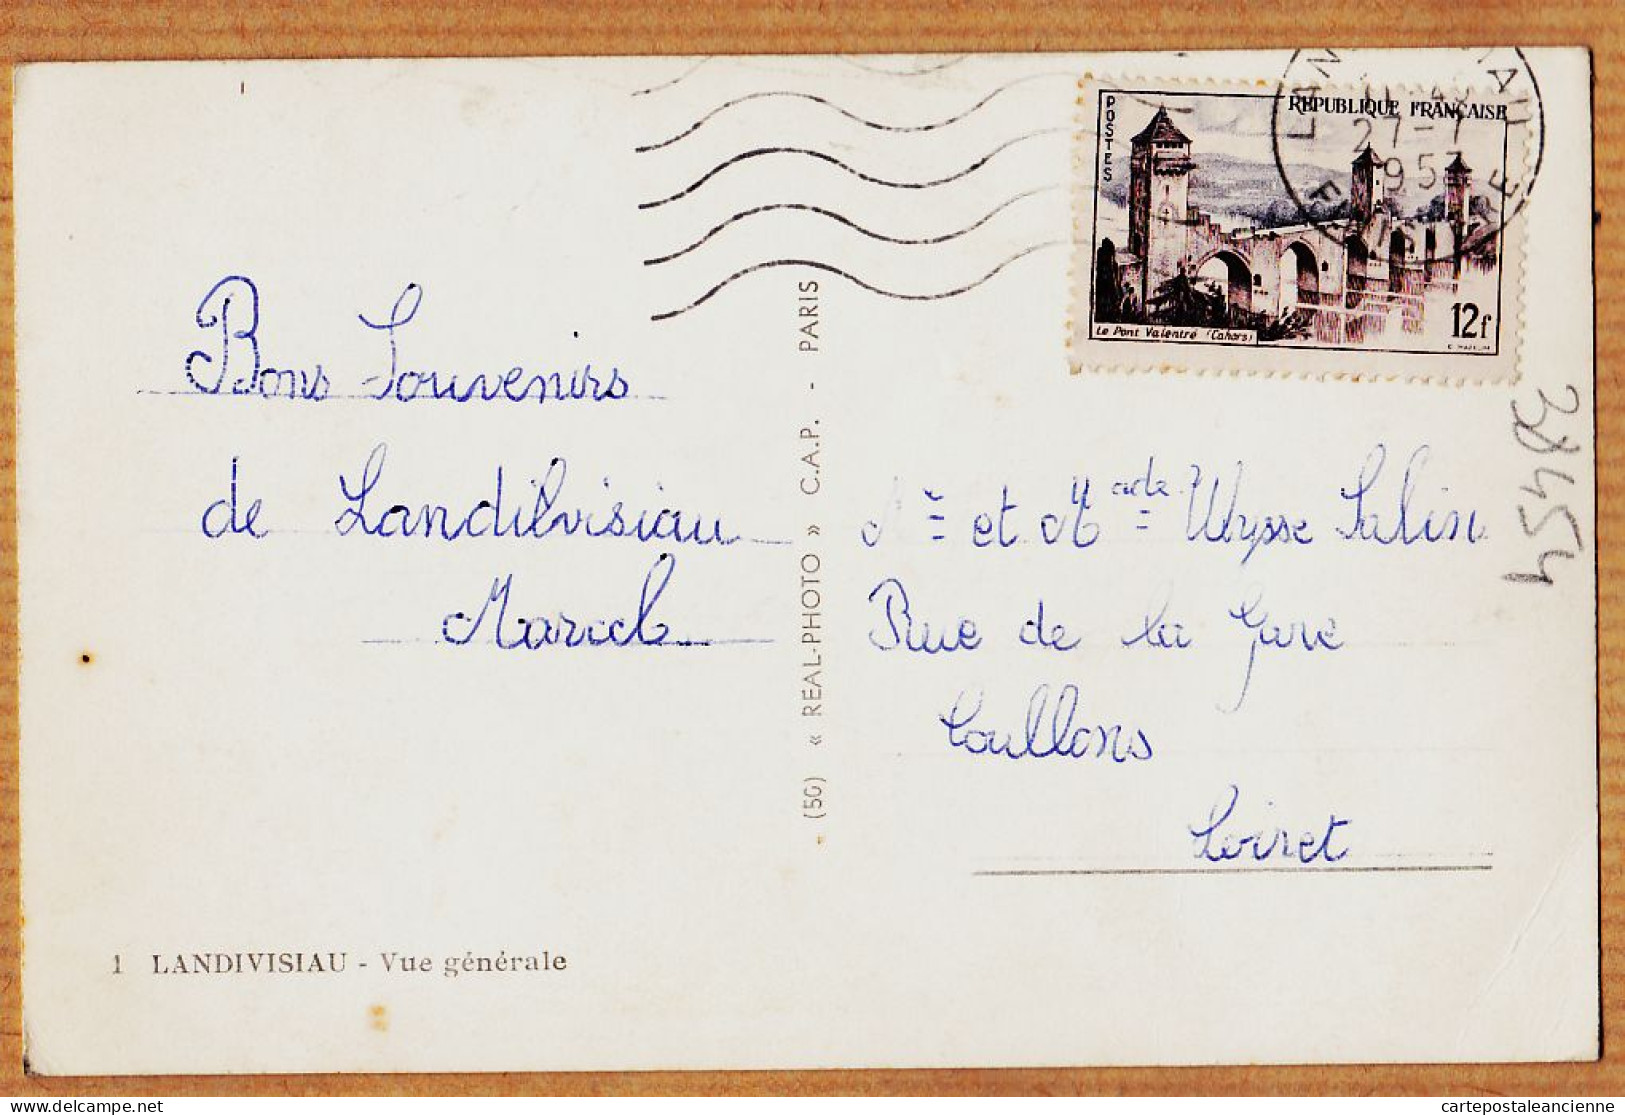 Bons Souvenirs
de Landilvisiau
Marcel
1 LANDIVISIAU - Vue générale
(50) « REAL-PHOTO » C.A.P. - PARIS
POSTES
REPUBLIQUE FRANÇAISE
Le Pont Valentré (Cahors)
12f
27-7
1957
FINISTERE
et Ulysse Salin
Rue de la Gare
Coullons
Loiret
38454
cartepostaleancienne
delcampe.net